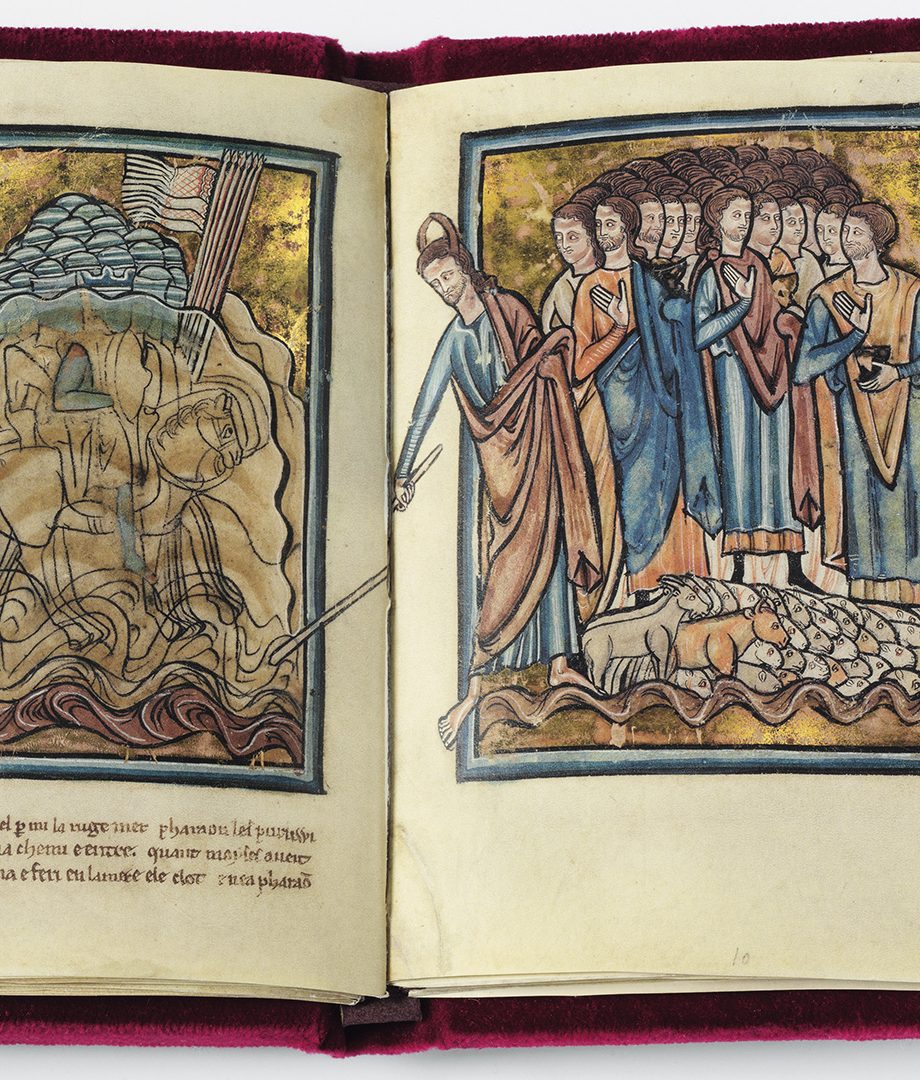 el p mi la ruge mer pharaou les
a chemi e entre. quant moyses aveit
a e feri en la mere ele clot pharaō
10